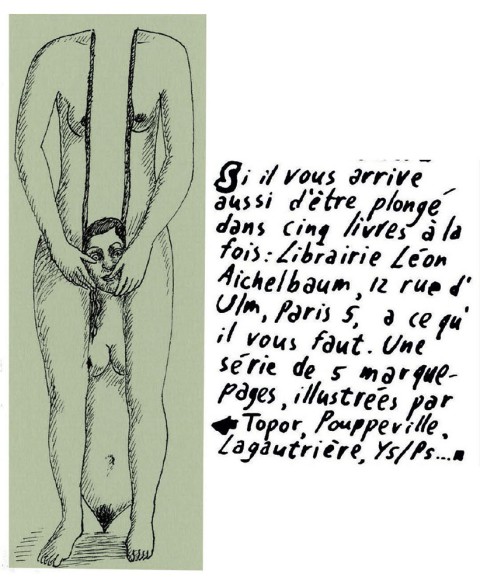 Si il vous arrive
aussi d'être plongé
dans cinq livres à la
fois: Librairie Léon
Aichelbaum, 12 rue d'
Ulm, Paris 5, a ce qu'
il vous faut. Une
série de 5 marque-
pages, illustrées par
Topor, Pouppeville,
Lagautrière, Ys/Ps....